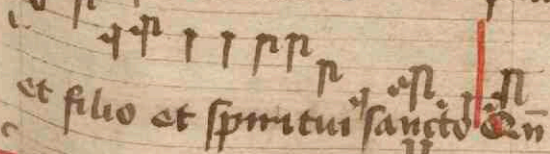 et filio et spiritui sancto Qn̄